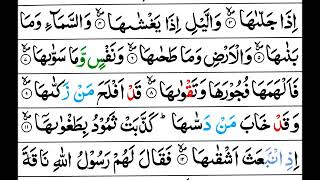 اِذَا جَلّٰىهَا ۝ وَالَّيْلِ اِذَا يَغْشٰىهَا ۝ وَالسَّمَآءِ وَمَا
بَنٰىهَا ۝ وَالْاَرْضِ وَمَا طَحٰىهَا ۝ وَنَفْسٍ وَّمَا سَوّٰىهَا ۝
فَاَلْهَمَهَا فُجُوْرَهَا وَتَقْوٰىهَا ۝ قَدْ اَفْلَحَ مَنْ زَكّٰىهَا ۝
وَقَدْ خَابَ مَنْ دَسّٰىهَا ۝ كَذَّبَتْ ثَمُوْدُ بِطَغْوٰىهَا ۝
اِذِ انْۢبَعَثَ اَشْقٰىهَا ۝ فَقَالَ لَهُمْ رَسُوْلُ اللّٰهِ نَاقَةَ